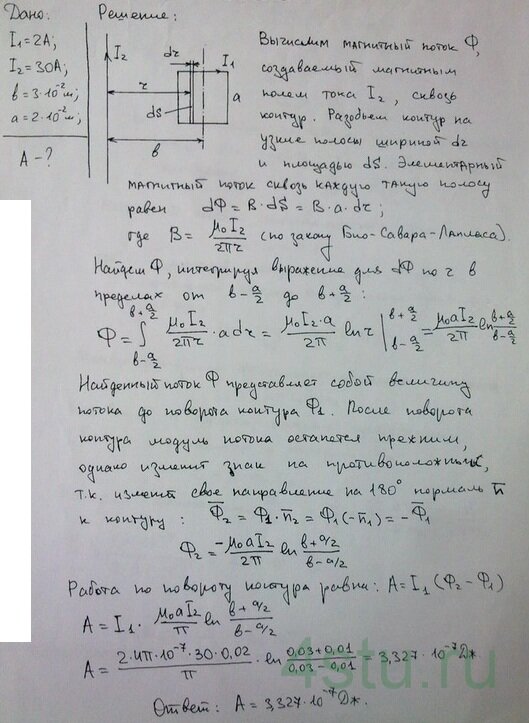 Дано: Решение:
I₁=2А;
I₂=30А;
в=3·10⁻²м;
a=2·10⁻²м;
А-?
dr
I₂
I₁
r
a
dS
в
Вычислим магнитный поток Ф,
создаваемый магнитным
полем тока I₂, сквозь
контур. Разобьем контур на
узкие полосы шириной dr
и площадью dS. Элементарный
магнитный поток сквозь каждую такую полосу
равен dФ = B·dS = B·a·dr;
где B = μ₀I₂/2πr (по закону Био-Савара-Лапласа).
Найдем Ф, интегрируя выражение для dФ по r в
пределах от в-a/2 до в+a/2:
Ф = ∫_{в-a/2}^{в+a/2} μ₀I₂/2πr · a dr = μ₀I₂·a/2π ln r |_{в-a/2}^{в+a/2} = μ₀aI₂/2π ln (в+a/2)/(в-a/2)
Найденный поток Ф представляет собой величину
потока до поворота контура Ф₁. После поворота
контура модуль потока останется прежним,
однако изменит знак на противоположный,
т.к. изменит свое направление на 180° нормаль n̄
к контуру: Ф̄₂ = Ф₁·n̄₂ = Ф₁(-n̄₁) = -Ф̄₁
Ф₂ = -μ₀aI₂/2π ln (в+a/2)/(в-a/2)
Работа по повороту контура равна: A=I₁(Ф₂-Ф₁)
A = I₁· μ₀aI₂/π ln (в+a/2)/(в-a/2)
A = 2·4π·10⁻⁷·30·0,02/π · ln (0,03+0,01)/(0,03-0,01) = 3,327·10⁻⁷Дж
Ответ: A = 3,327·10⁻⁷Дж.
4stu.ru